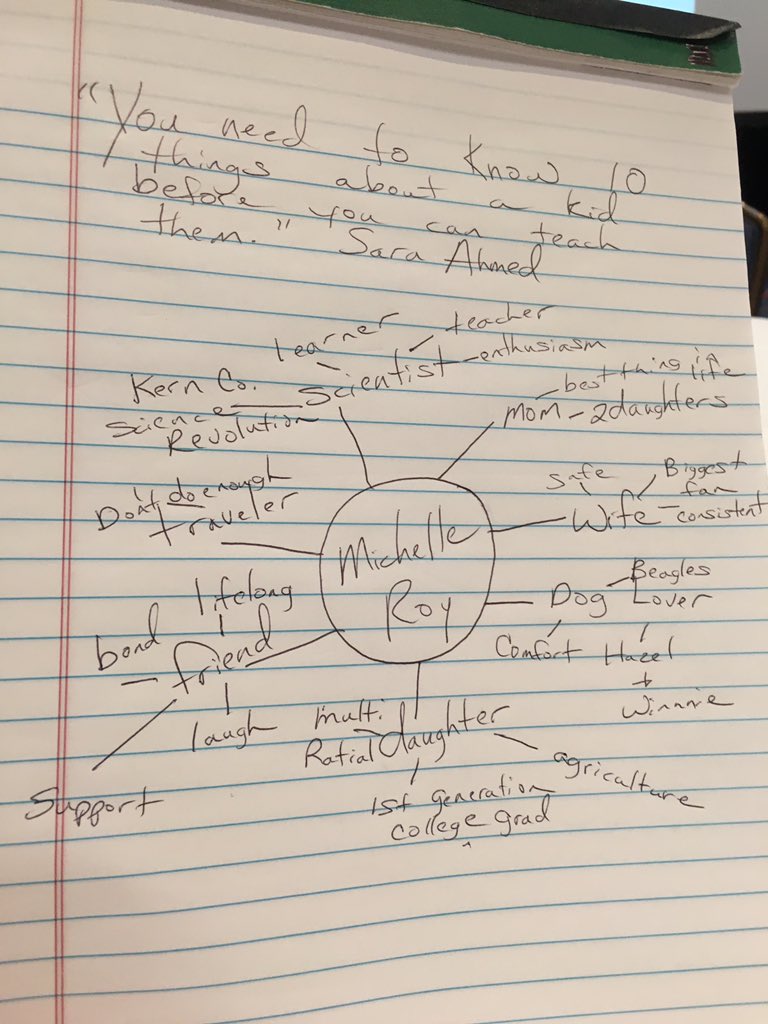 "You need to know 10
things about a kid
before you can teach
them." Sara Ahmed
learner
teacher
Scientist
enthusiasm
Kern Co.
Science
Revolution
best thing in
life
mom - 2 daughters
Don't do enough
traveler
safe
Biggest
fan
Wife
consistent
Michelle
Roy
lifelong
bond
friend
laugh
Support
Beagles
Dog Lover
Comfort
Hazel
+
Winnie
multi.
Ratial daughter
agriculture
1st generation
college grad